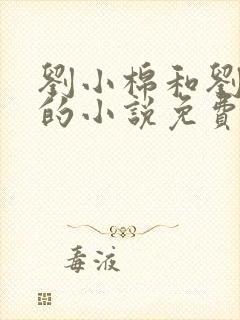 劉小棉和劉
的小說免費
毒液